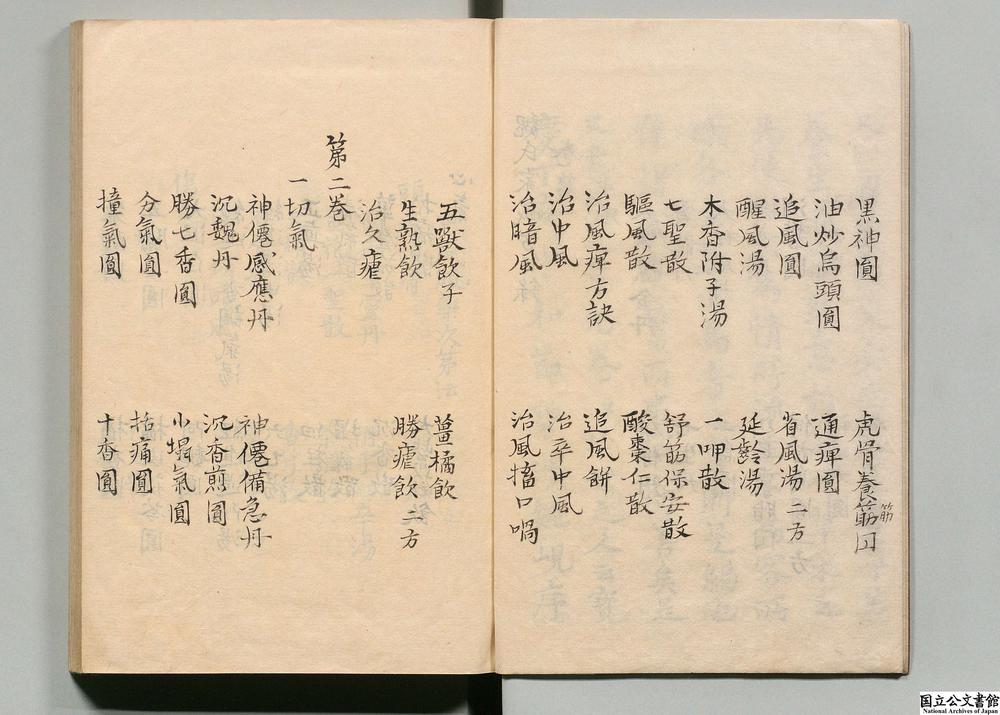 黒神圓　虎骨養筋圓
筋
油炒烏頭圓　通痺圓
追風圓　省風湯二方
醒風湯　延齡湯
木香附子湯　一呷散
七聖散　舒筋保安散
驅風散　酸棗仁散
治風痺方訣　追風餅
治中風　治卒中風
治暗風　治風搐口喎
五獸飲子　薑橘飲
生熟飲　勝瘧飲二方
治久瘧
第二巻
一切氣
神僊感應丹　神僊備急丹
沉魏丹　沉香煎圓
勝七香圓　小塌氣圓
分氣圓　括痛圓
撞氣圓　十香圓
国立公文書館
National Archives of Japan